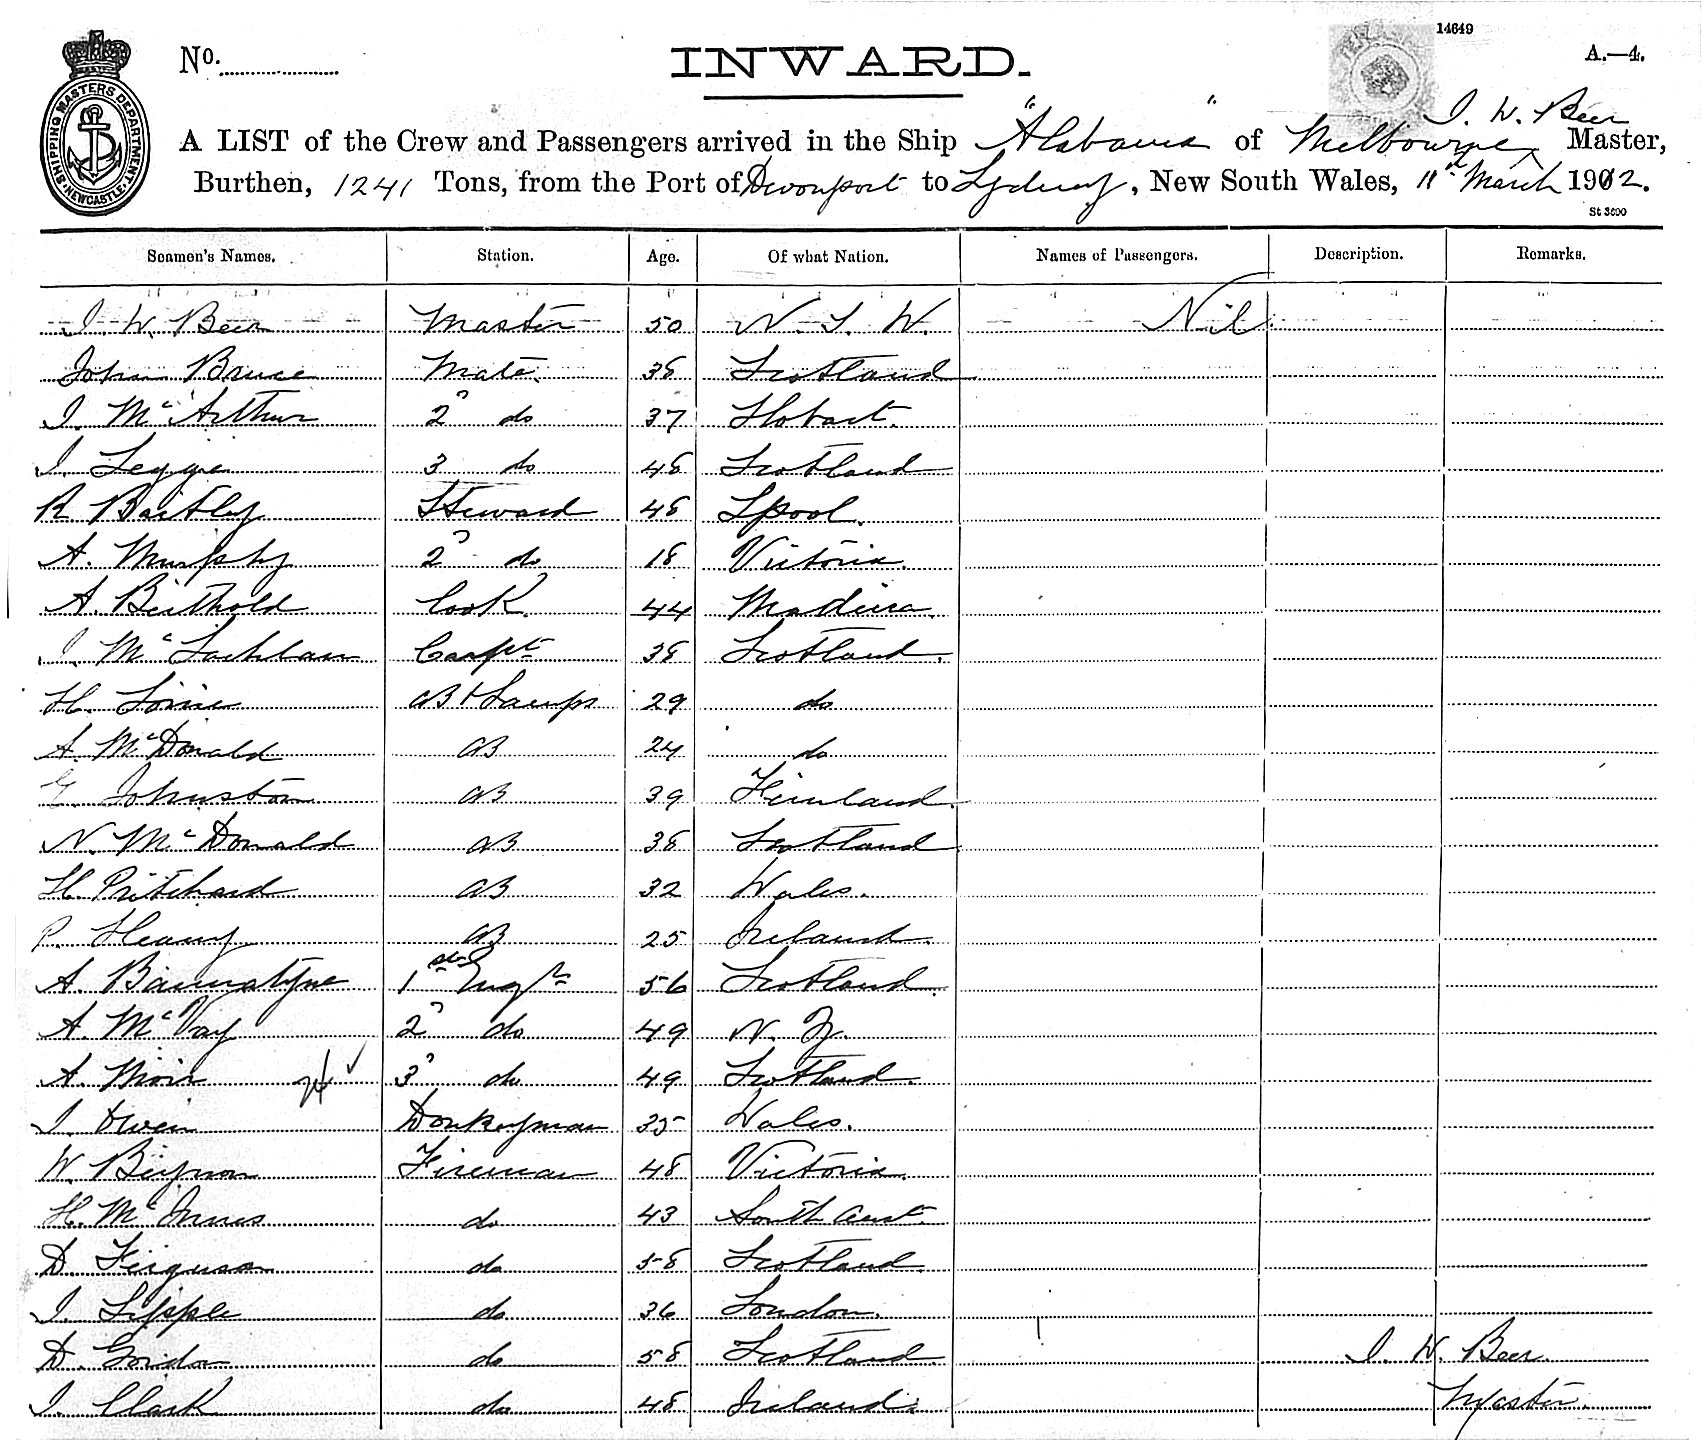 14649
No. INWARD. A.—4.
SHIPPING MASTERS DEPARTMENT NEWCASTLE
J. W. Beer
A LIST of the Crew and Passengers arrived in the Ship "Alabama" of Melbourne, Master,
Burthen, 1241 Tons, from the Port of Devonport to Sydney, New South Wales, 11th March 1902.
St 3600
Seamen's Names. Station. Age. Of what Nation. Names of Passengers. Description. Remarks.
J. W. Beer Master 50 N. S. W. Nil
John Bruce Mate. 38 Scotland
J. McArthur 2" do 37 Hobart.
J. Legge 3 do 48 Scotland
R Bartley Steward 48 Lpool.
A. Murphy 2" do 18 Victoria.
A. Berthold Cook. 44 Madeira.
J. McLachlan Carpt 38 Scotland.
H. Lorie AB & Lamps 29 do
A. McDonald AB 24 do
G. Johnston AB 39 Finland.
N. McDonald AB 38 Scotland
H. Pritchard AB 32 Wales.
P. Heany AB 25 Ireland.
A. Bannatyne 1st Engr 56 Scotland.
A. McVay 2" do 49 N. Z.
A. Moir 3" do 49 Scotland.
J. Owen Donkeyman 35 Wales.
W. Beynon Fireman 48 Victoria.
H. McInnes do 43 South Aust.
D. Ferguson do 58 Scotland.
J. Sipple do 36 London.
D. Gordon do 58 Scotland. J. W. Beer.
J. Clark do 48 Ireland. Master.